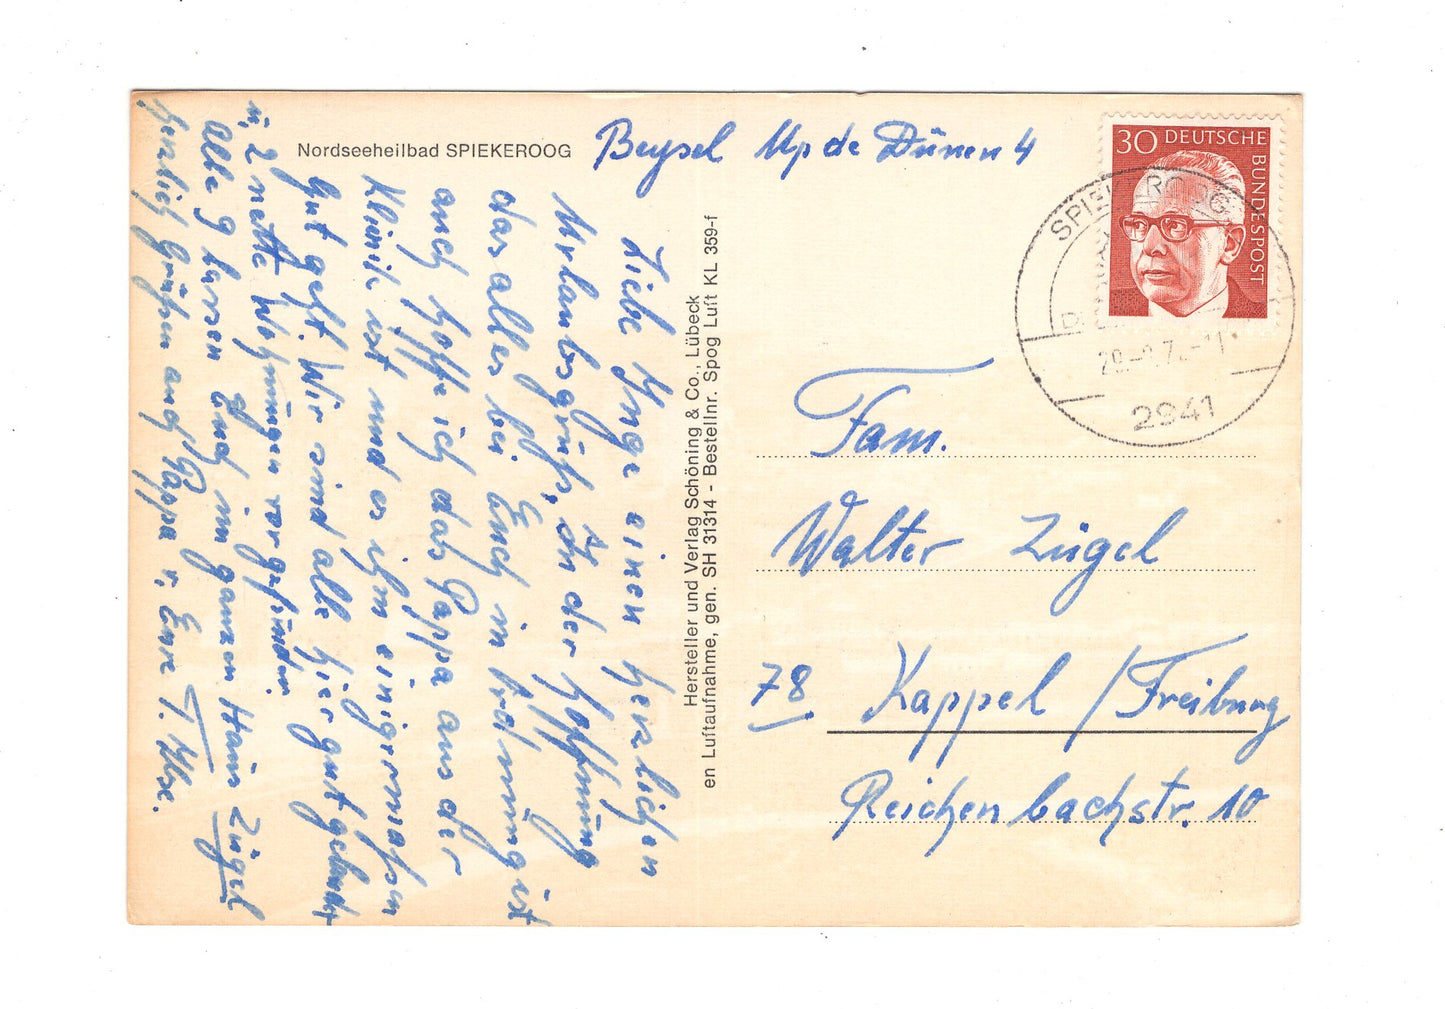 Nordseeheilbad SPIEKEROOG
Beysel Up de Dünen 4
Liebe Inge einen herzlichen
Urlaubsgruß, In der Hoffnung
das alles bei Euch in Ordnung ist
auch hoffe ich das Pappa aus der
Klinik ist und es ihm einigermaßen
gut geht. Wir sind alle hier gut gelandet
u, 2 nette Wohnungen vorgefunden.
Alle 9 lassen Euch im ganzen Haus Zügel
herzlich Grüßen auch Pappa v, Eure T. Ilse.
Hersteller und Verlag Schöning & Co., Lübeck
en Luftaufnahme, gen. SH 31314 - Bestellnr. Spog Luft KL 359-f
30 DEUTSCHE
BUNDESPOST
SPIEKEROOG
2941
Fam.
Walter Zügel
78 Kappel / Freiburg
Reichenbachstr. 10